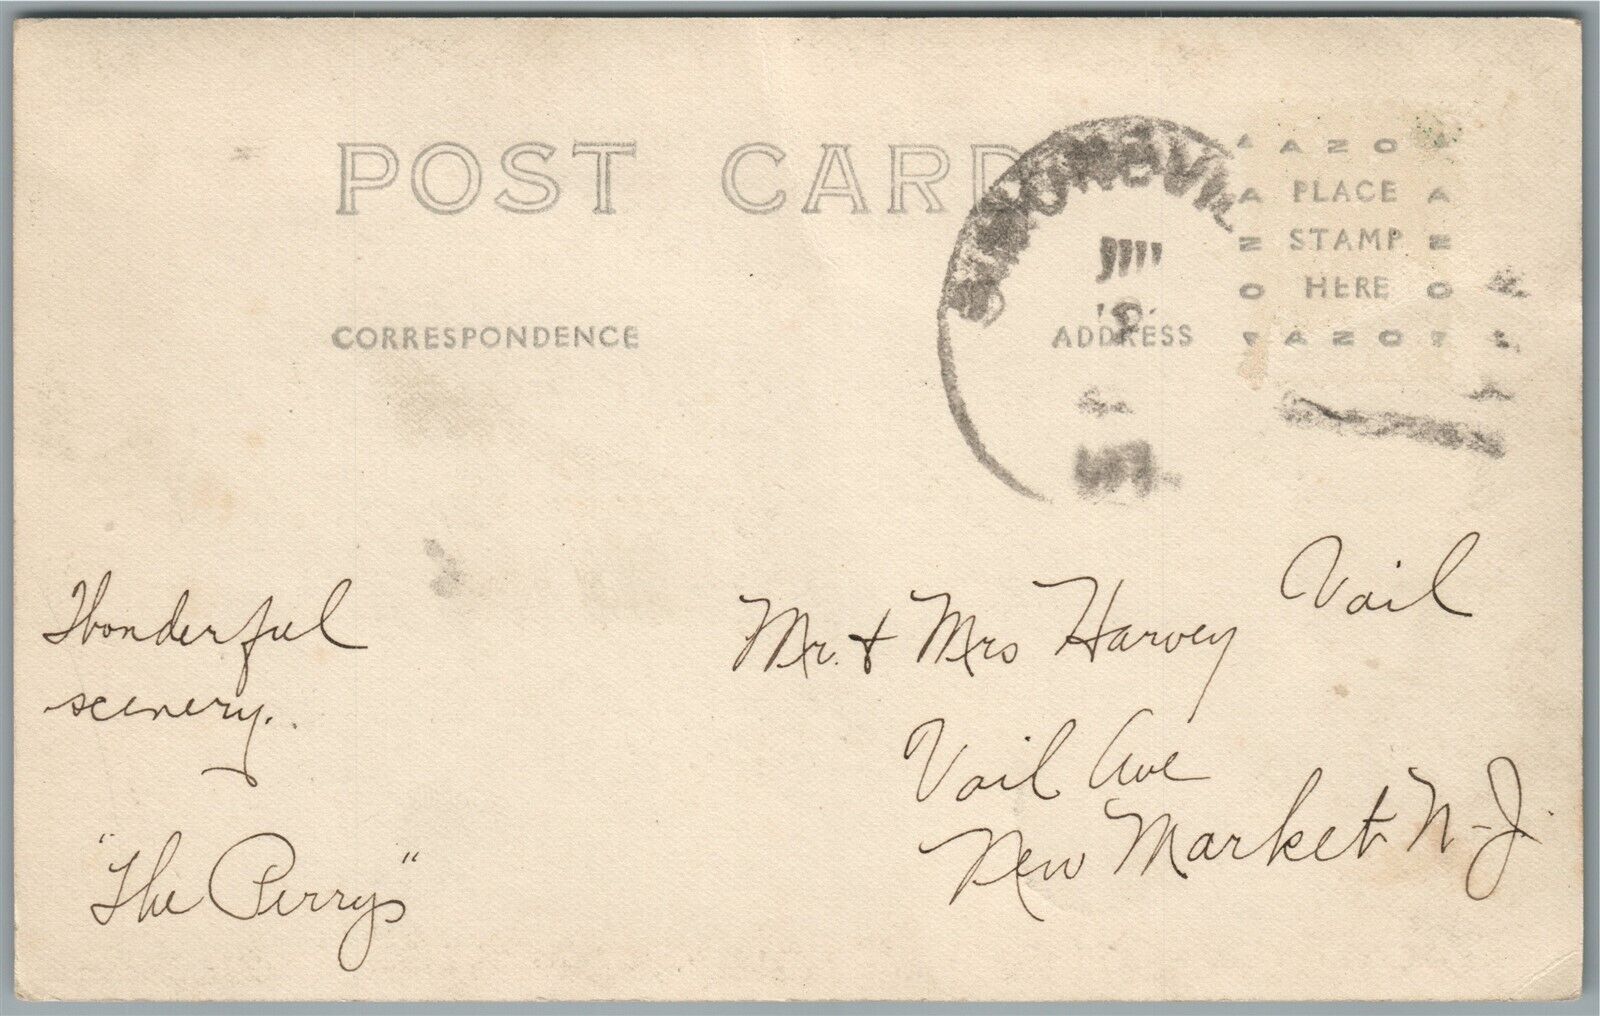 POST CARD
AZO
PLACE
STAMP
HERE
AZO
CORRESPONDENCE
ADDRESS
Wonderful
scenery.
"The Perrys"
Mr. & Mrs Harvey Vail
Vail Ave
New Market N-J.